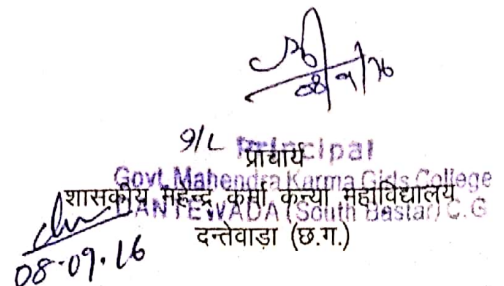 08/9/16
9/L Principal
प्राचार्य
Govt. Mahendra Karma Girls College
शासकीय महेन्द्र कर्मा कन्या महाविद्यालय
DANTEWADA (South Bastar) C.G
दन्तेवाड़ा (छ.ग.)
08-09-16